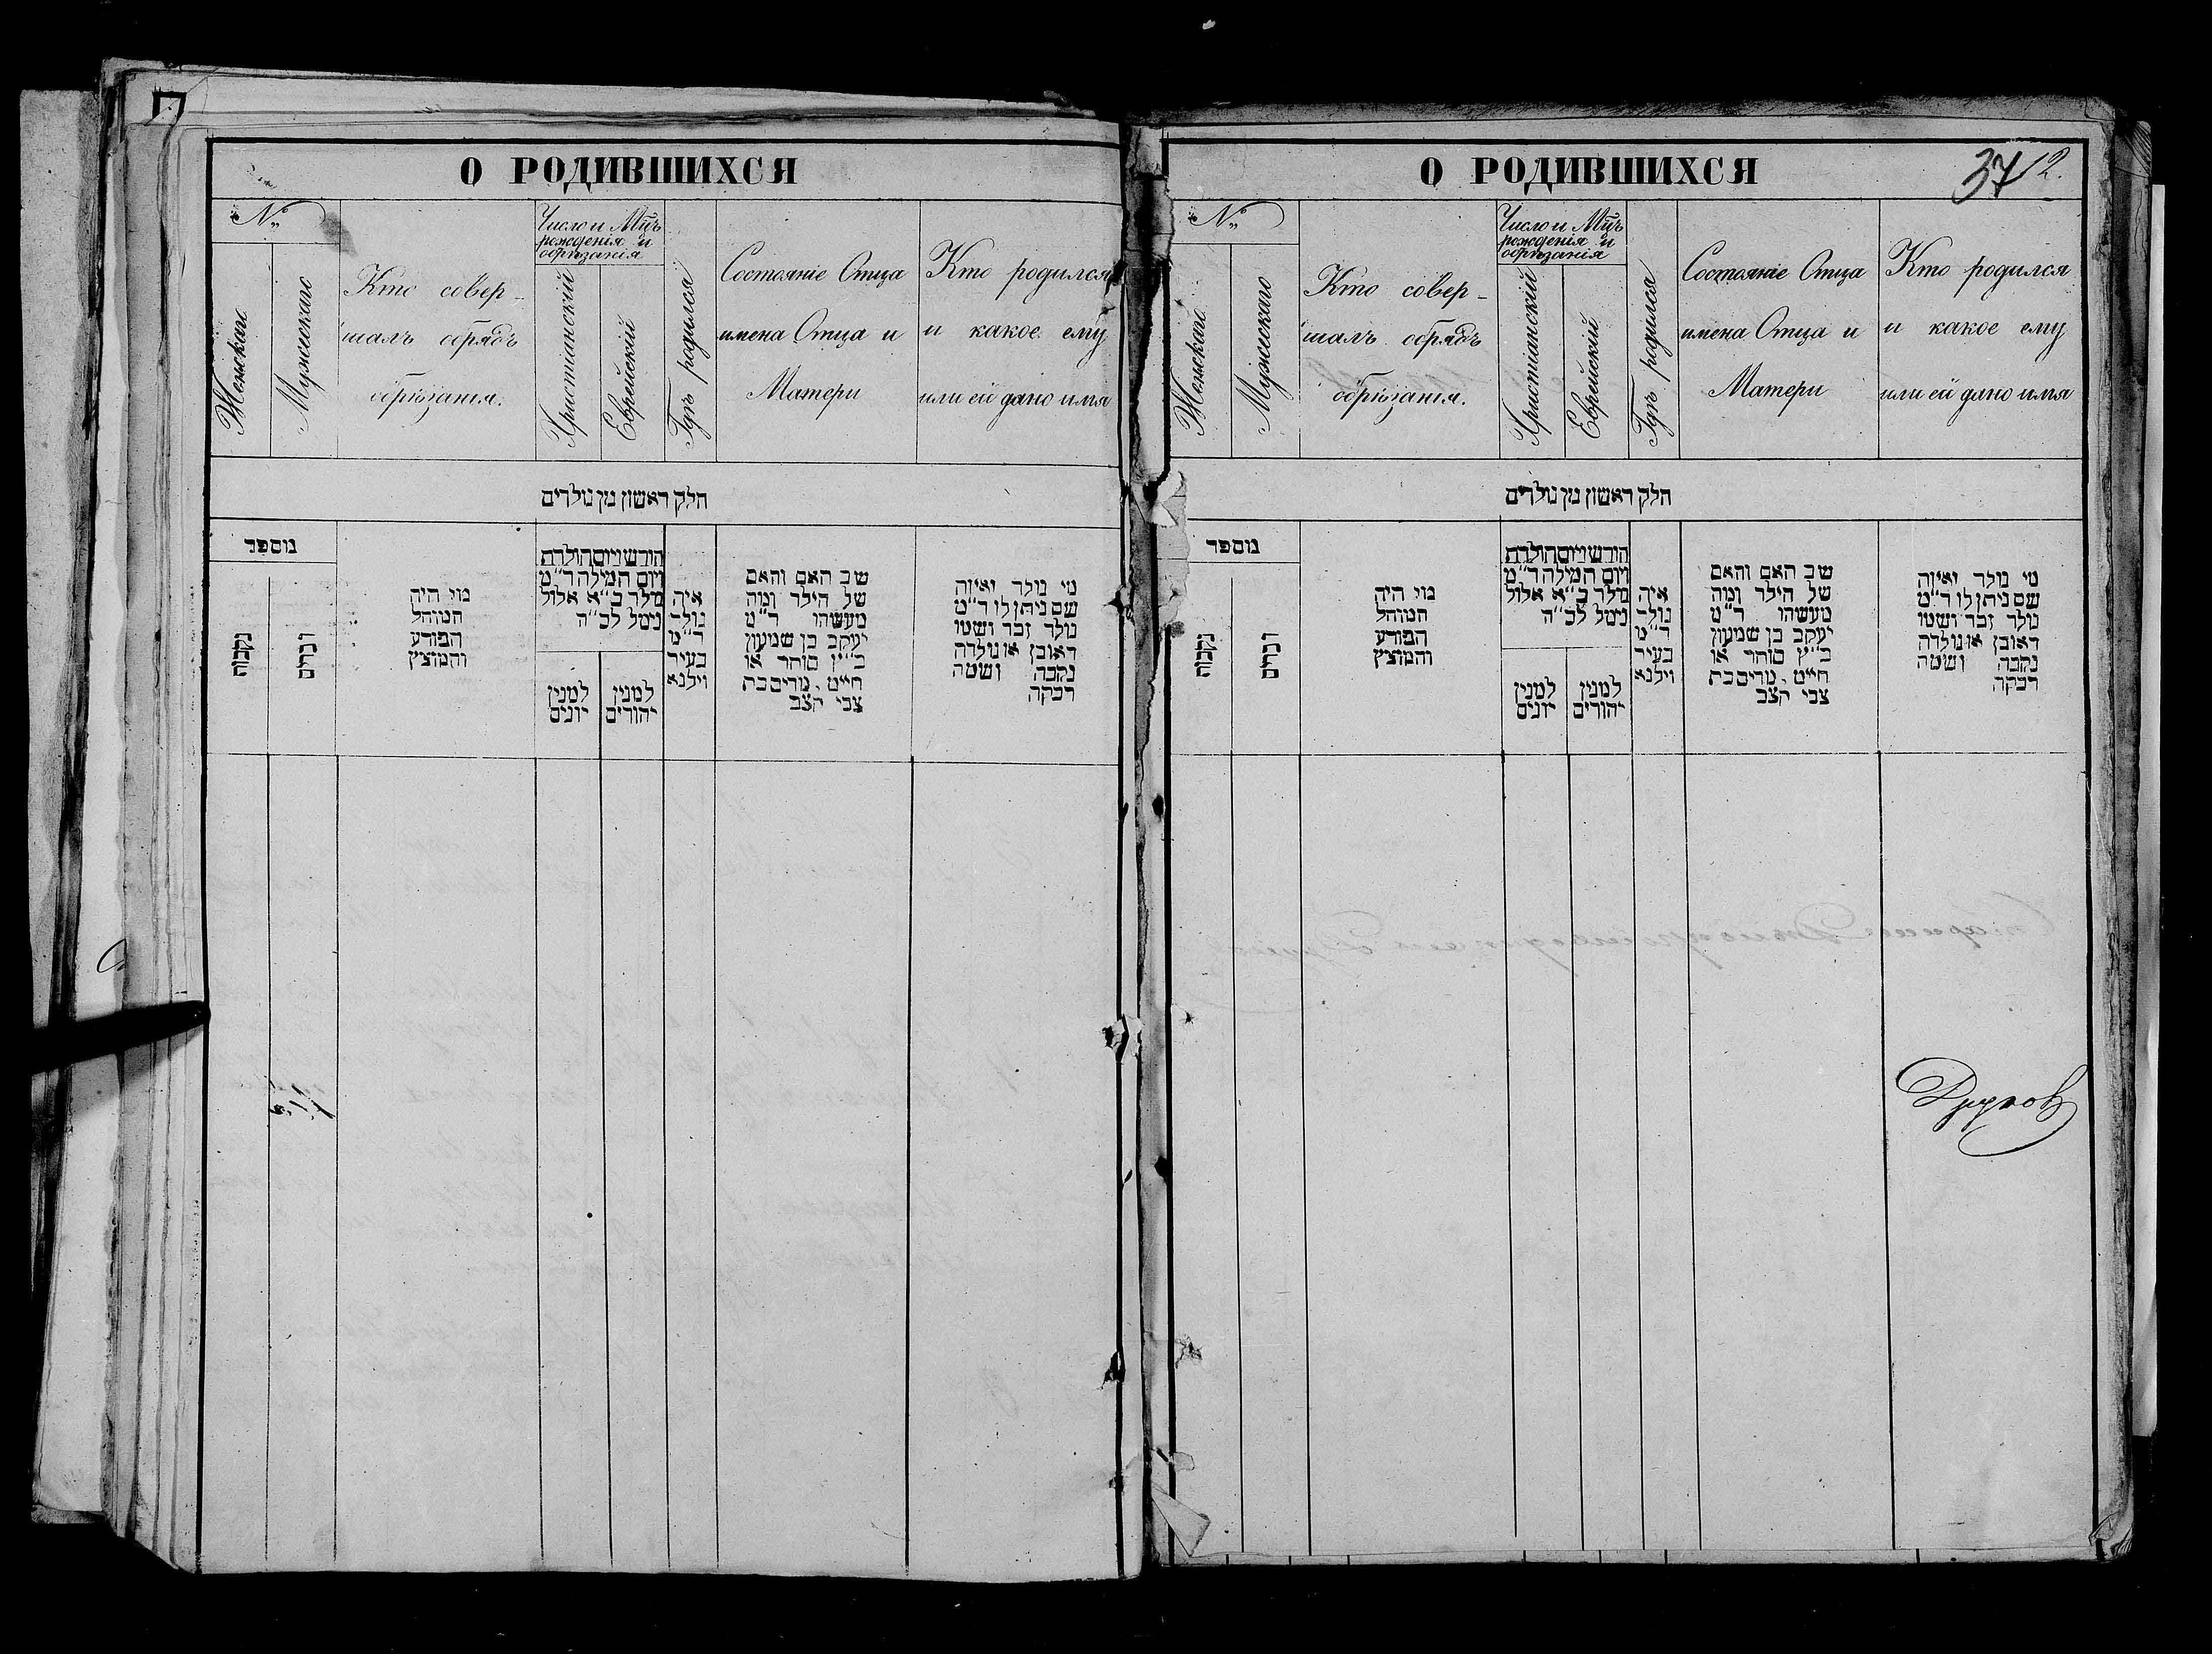 О РОДИВШИХСЯ
№
Женскаго
Мужескаго
Кто совер-
шалъ обрядъ
обрѣзанія.
Число и Мѣсяцъ
рожденія и
обрѣзанія
Христіанскій
Еврейскій
Гдѣ родился
Состояніе Отца
имена Отца и
Матери
Кто родился
и какое ему
или ей дано имя
חלק ראשון מן נולדים
מוספר
נקבות
זכרים
מי היה
המוהל
הפורע
והמוצץ
חודש ויום הולדת
ויום המילה ד"מ
נולד כ"א אלול
נימל לכ"ה
למנין
יונים
למנין
יהודים
איה
נולד
ד"מ
בעיר
וילנא
שב האם והאם
של הילד ומה
מעשהו ד"מ
יעקב בן שמעון
כ"ץ סוחר או
חייט, מרים בת
צבי קצב
מי נולד ואיזה
שם ניתן לו ד"מ
נולד זכר ושמו
ראובן או נולדה
נקבה ושמה
רבקה
О РОДИВШИХСЯ
37
2.
№
Женскаго
Мужескаго
Кто совер-
шалъ обрядъ
обрѣзанія.
Число и Мѣсяцъ
рожденія и
обрѣзанія
Христіанскій
Еврейскій
Гдѣ родился
Состояніе Отца
имена Отца и
Матери
Кто родился
и какое ему
или ей дано имя
חלק ראשון מן נולדים
מוספר
נקבות
זכרים
מי היה
המוהל
הפורע
והמוצץ
חודש ויום הולדת
ויום המילה ד"מ
נולד כ"א אלול
נימל לכ"ה
למנין
יונים
למנין
יהודים
איה
נולד
ד"מ
בעיר
וילנא
שב האם והאם
של הילד ומה
מעשהו ד"מ
יעקב בן שמעון
כ"ץ סוחר או
חייט, מרים בת
צבי קצב
מי נולד ואיזה
שם ניתן לו ד"מ
נולד זכר ושמו
ראובן או נולדה
נקבה ושמה
רבקה